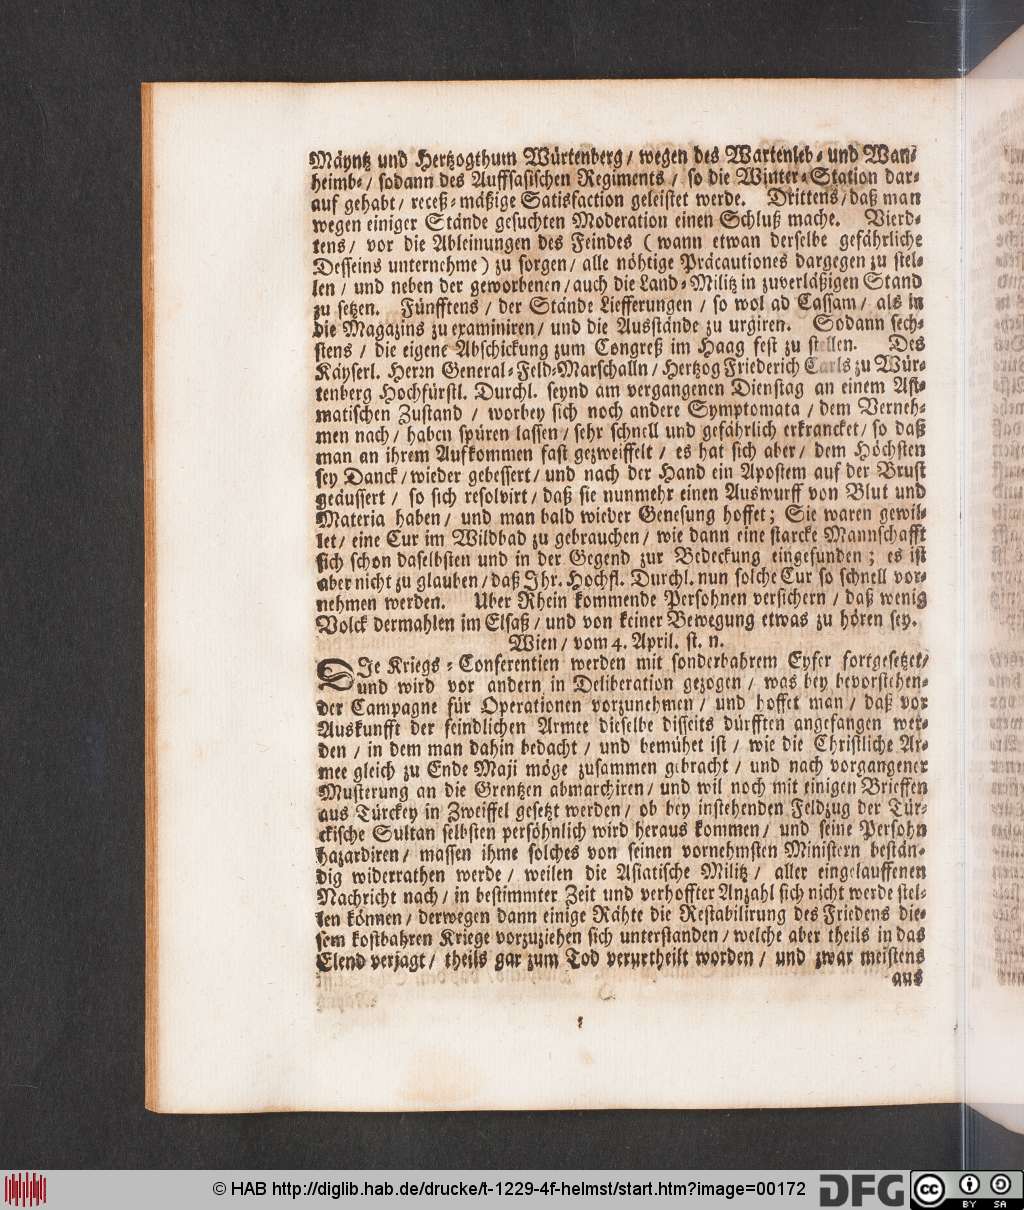 Mäyntz und Hertzogthum Würtenberg / wegen des Wartenleb- und Wan-
heimb- / sodann des Auffsasischen Regiments / so die Winter-Station dar-
auf gehabt / receß-mäßige Satisfaction geleistet werde. Drittens / daß man
wegen einiger Stände gesuchten Moderation einen Schluß mache. Vierd-
tens / vor die Ableinungen des Feindes ( wann etwan derselbe gefährliche
Desseins unternehme ) zu sorgen / alle nöhtige Präcautiones dargegen zu stel-
len / und neben der geworbenen / auch die Land-Militz in zuverläßigen Stand
zu setzen. Fünfftens / der Stände Liefferungen / so wol ad Cassam / als in
die Magazins zu examiniren / und die Ausstände zu urgiren. Sodann sech-
stens / die eigene Abschickung zum Congreß im Haag fest zu stellen. Des
Käyserl. Herrn General-Feld-Marschalln / Hertzog Friederich Carls zu Wür-
tenberg Hochfürstl. Durchl. seynd am vergangenen Dienstag an einem Ast-
matischen Zustand / worbey sich noch andere Symptomata / dem Verneh-
men nach / haben spüren lassen / sehr schnell und gefährlich erkrancket / so daß
man an ihrem Aufkommen fast gezweiffelt / es hat sich aber / dem Höchsten
sey Danck / wieder gebessert / und nach der Hand ein Apostem auf der Brust
geäussert / so sich resolvirt / daß sie nunmehr einen Auswurff von Blut und
Materia haben / und man bald wieder Genesung hoffet ; Sie waren gewil-
let / eine Cur im Wildbad zu gebrauchen / wie dann eine starcke Mannschafft
sich schon daselbsten und in der Gegend zur Bedeckung eingefunden ; es ist
aber nicht zu glauben / daß Ihr. Hochfl. Durchl. nun solche Cur so schnell vor-
nehmen werden. Uber Rhein kommende Persohnen versichern / daß wenig
Volck dermahlen im Elsaß / und von keiner Bewegung etwas zu hören sey.
Wien / vom 4. April. st. n.
DIe Kriegs-Conferentien werden mit sonderbahrem Eyfer fortgesetzet /
und wird vor andern in Deliberation gezogen / was bey bevorstehen-
der Campagne für Operationen vorzunehmen / und hoffet man / daß vor
Auskunfft der feindlichen Armee dieselbe disseits dürfften angefangen wer-
den / in dem man dahin bedacht / und bemühet ist / wie die Christliche Ar-
mee gleich zu Ende Maji möge zusammen gebracht / und nach vorgangener
Musterung an die Grentzen abmarchiren / und wil noch mit einigen Brieffen
aus Türckey in Zweiffel gesetzt werden / ob bey instehenden Feldzug der Tür-
ckische Sultan selbsten persöhnlich wird heraus kommen / und seine Persohn
hazardiren / massen ihme solches von seinen vornehmsten Ministern bestän-
dig widerrathen werde / weilen die Asiatische Militz / aller eingelauffenen
Nachricht nach / in bestimmter Zeit und verhoffter Anzahl sich nicht werde stel-
len können / derwegen dann einige Rähte die Restabilirung des Friedens die-
sem kostbahren Kriege vorzuziehen sich unterstanden / welche aber theils in das
Elend verjagt / theils gar zum Tod verurtheilt worden / und zwar meistens
aus
© HAB http://diglib.hab.de/drucke/t-1229-4f-helmst/start.htm?image=00172
DFG
CC BY SA